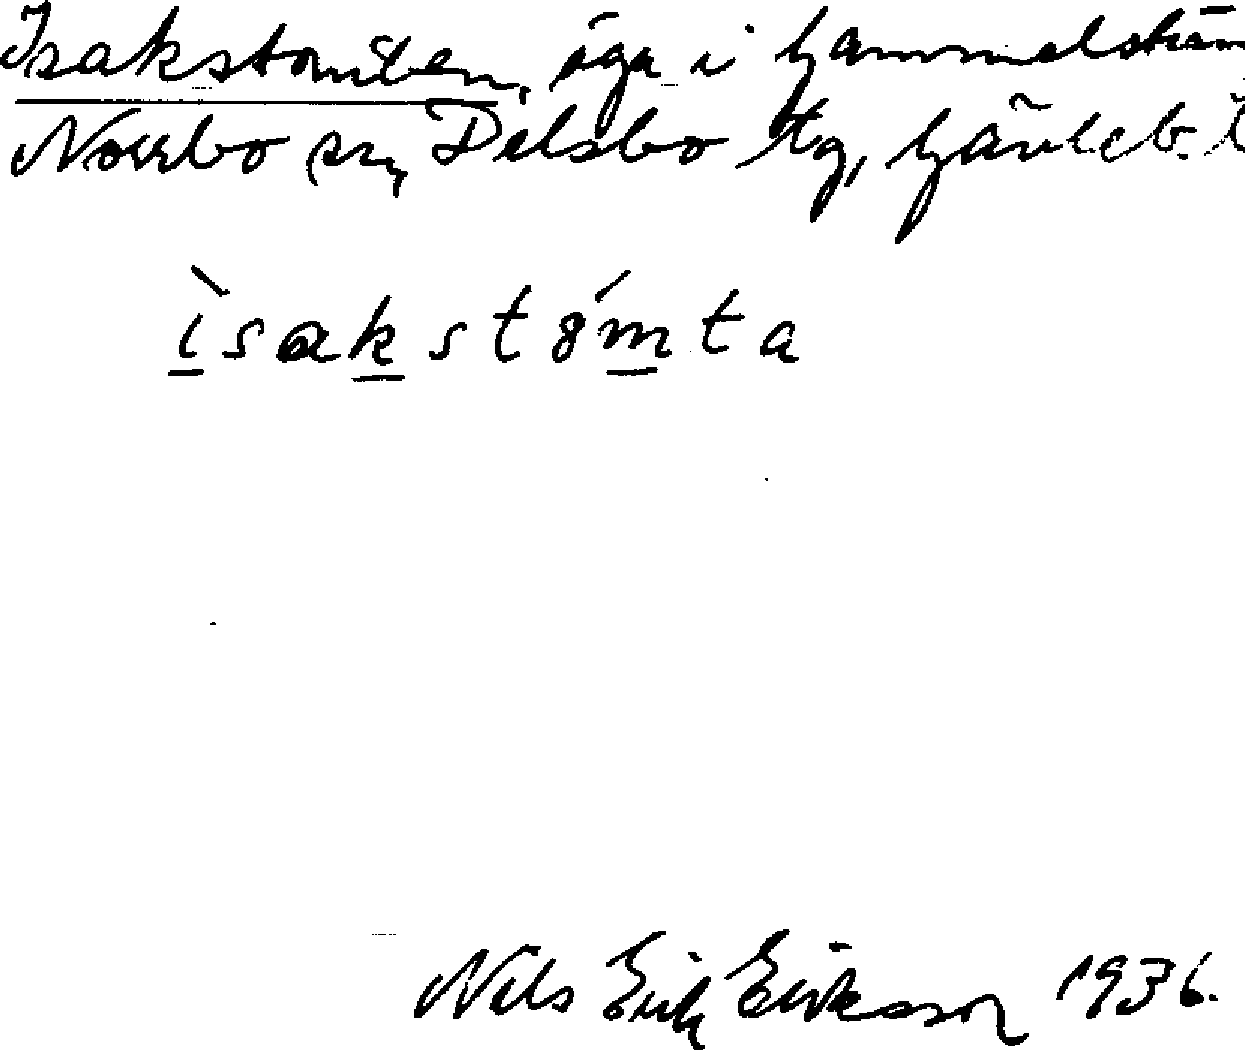 Isakstomten, äga i Gammelsträm
Norrbo sn, Delsbo tg, Gävleb. l
ìsakstómta
Nils Erik Eriksson 1936.